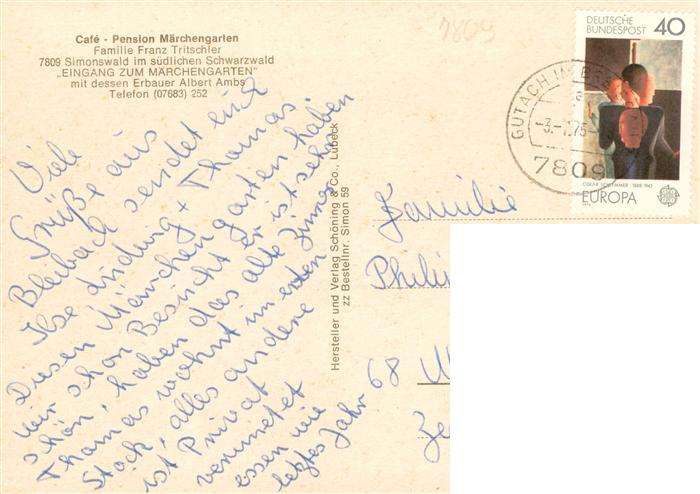 Café - Pension Märchengarten
Familie Franz Tritschler
7809 Simonswald im südlichen Schwarzwald
„EINGANG ZUM MÄRCHENGARTEN"
mit dessen Erbauer Albert Ambs
Telefon (07683) 252
7809
DEUTSCHE
BUNDESPOST 40
OSKAR SCHLEMMER 1888-1943
EUROPA
GUTACH IM
7809
Viele
Grüße aus
Bleibach sendet euch
Ilse Ludwig + Thomas
Diesen Märchengarten haben
wir schon Besucht Er ist sehr
schön, haben das alte Zimmer
Thomas wohnt im ersten
Stock, alles andere
ist Privat
vermietet
essen wie
letztes Jahr
Hersteller und Verlag Schöning & Co., Lübeck
zz Bestellnr. Simon 59
Familie
Phili
68